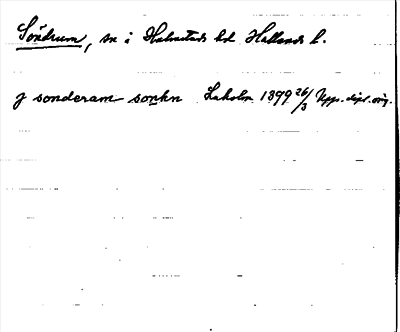 Söndrum, sn i Halmstads hd Hallands l.
j sonderam sonkn Laholm 1399 26/3 Upps. dipl. orig.